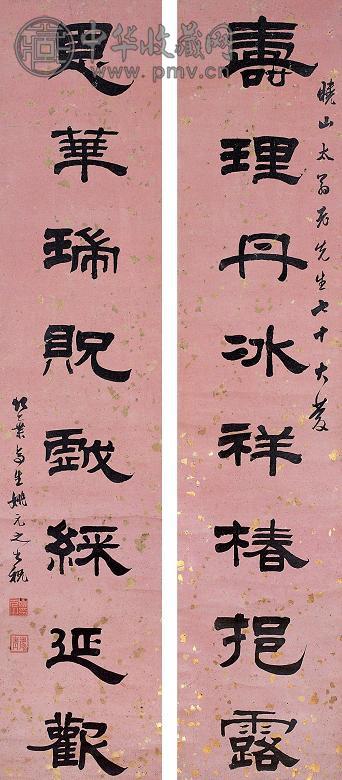 中华收藏网
www.pmv.cn
曉山太翁老先生七十大慶
壽理丹冰祥椿挹露
恩華瑞貺戲綵延歡
生姚元之書祝